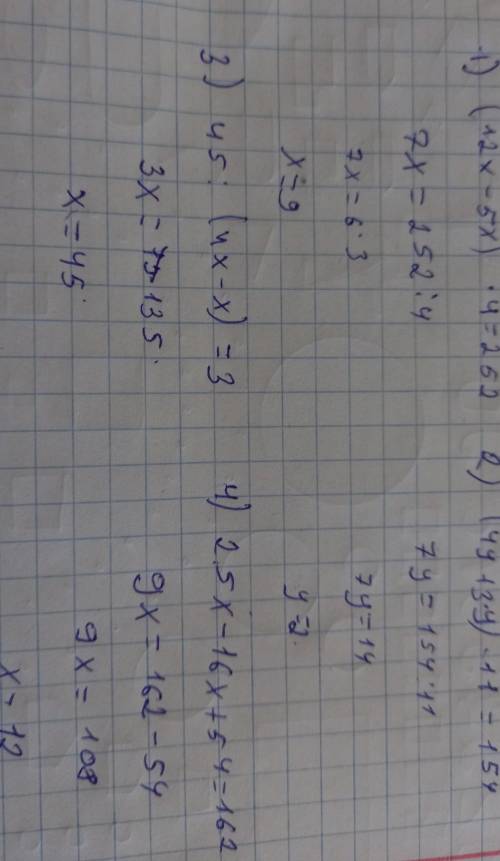 1) (12x-5x)·4=252
7x=252:4
7x=6·3
x=9
2) (4y+3·y)·11=154
7y=154:11
7y=14
y=2.
3) 45:(4x-x)=3
3x=135.
x=45.
4) 2.5x-16x+54=162
9x=162-54
9x=108
x=12